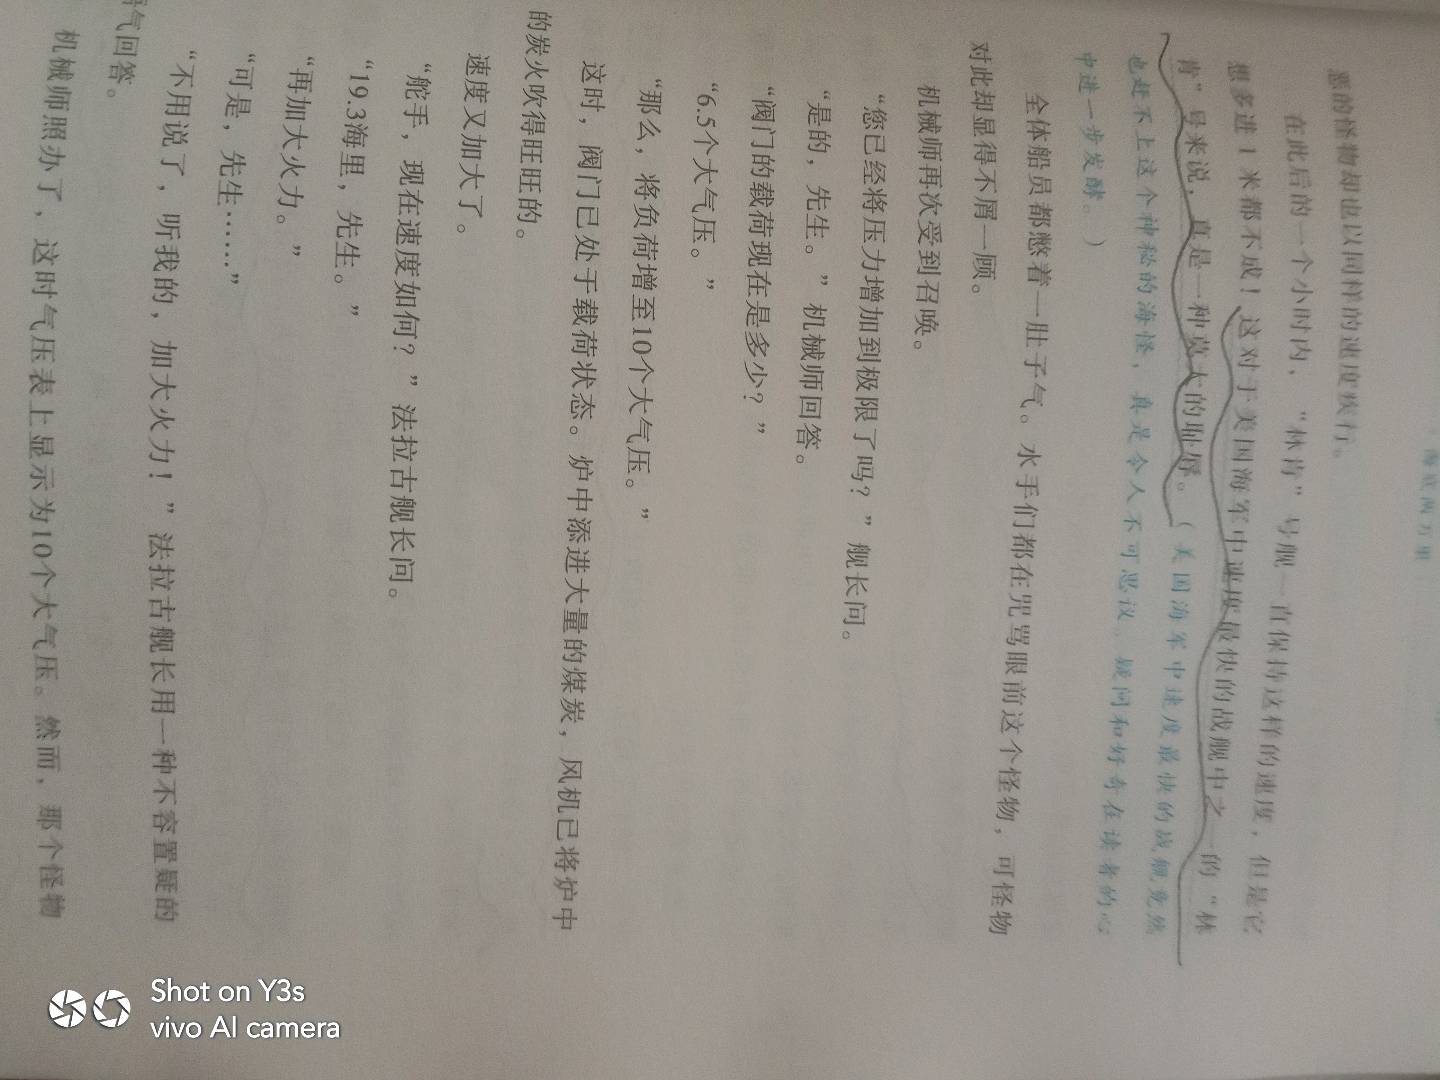 海底两万里
恶的怪物却也以同样的速度疾行。
在此后的一个小时内，“林肯”号舰一直保持这样的速度，但是它
想多进1米都不成！这对于美国海军中速度最快的战舰中之一的“林
肯”号来说，真是一种莫大的耻辱。（美国海军中速度最快的战舰竟然
也赶不上这个神秘的海怪，真是令人不可思议。疑问和好奇在读者的心
中进一步发酵。）
全体船员都憋着一肚子气。水手们都在咒骂眼前这个怪物，可怪物
对此却显得不屑一顾。
机械师再次受到召唤。
“您已经将压力增加到极限了吗？”舰长问。
“是的，先生。”机械师回答。
“阀门的载荷现在是多少？”
“6.5个大气压。”
“那么，将负荷增至10个大气压。”
这时，阀门已处于载荷状态。炉中添进大量的煤炭，风机已将炉中
的炭火吹得旺旺的。
速度又加大了。
“舵手，现在速度如何？”法拉古舰长问。
“19.3海里，先生。”
“再加大火力。”
“可是，先生……”
“不用说了，听我的，加大火力！”法拉古舰长用一种不容置疑的
语气回答。
机械师照办了，这时气压表上显示为10个大气压。然而，那个怪物
Shot on Y3s
vivo AI camera